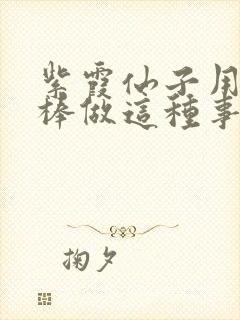 紫霞仙子用
棒做這種事
掬夕